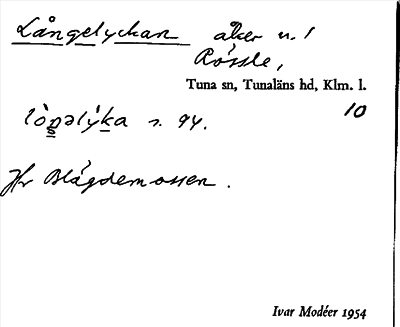 Långelyckan åker u. 1
Rössle,
Tuna sn, Tunaläns hd, Klm. l.
10
lòŋəlýka s. 94.
Hr Blågdemossen.
Ivar Modéer 1954